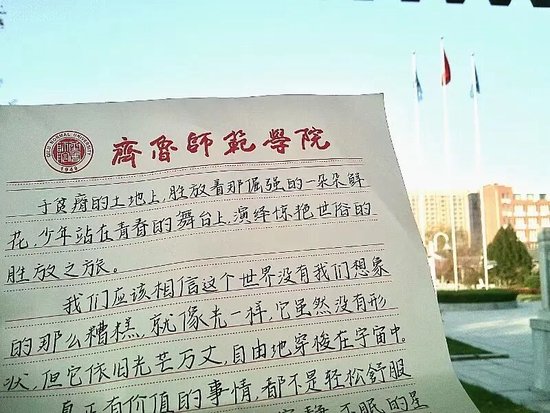 齊魯師範學院
于贫瘠的土地上,胜放着那倔强的一朵朵鲜
花,少年站在青春的舞台上,演绎惊艳世俗的
胜放之旅。
我们应该相信这个世界没有我们想象
的那么糟糕,就像光一样,它虽然没有形
状,但它依旧光芒万丈,自由地穿梭在宇宙中.
真正有价值的事情,都不是轻松舒服